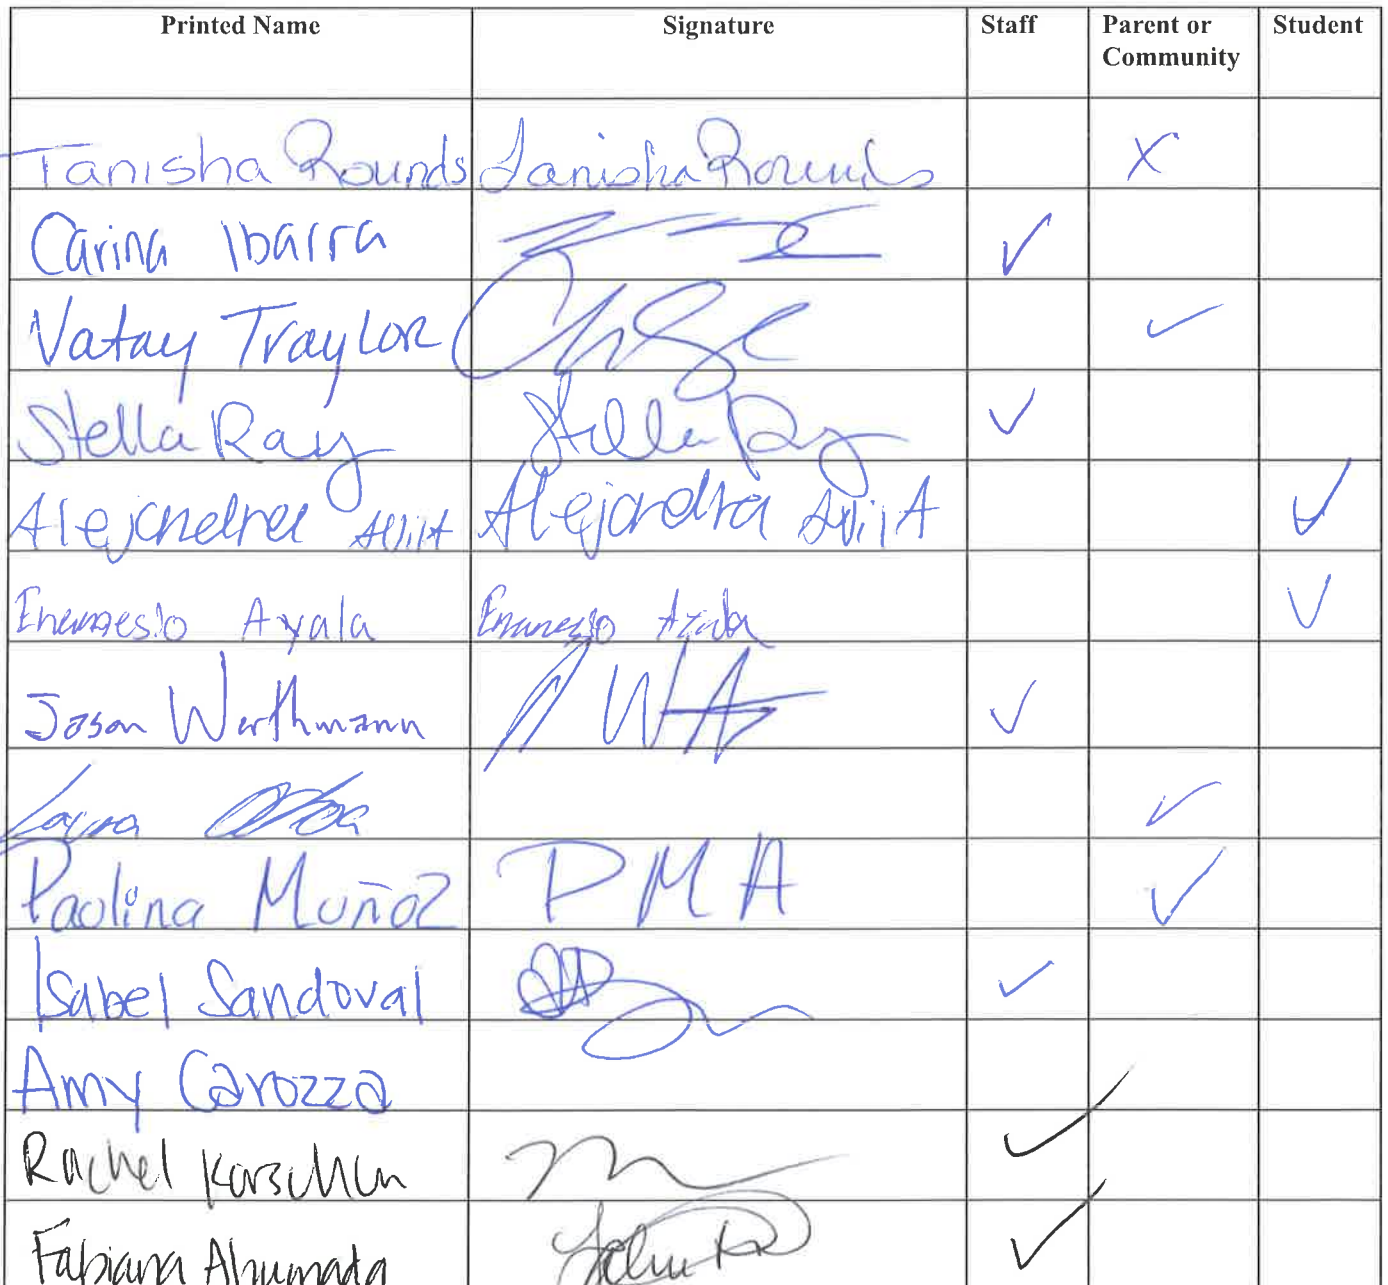 Printed Name Signature Staff Parent or Community Student
Tanisha Rounds Tanisha Rounds X
Carina Ibarra ✓
Vatay Traylor ✓
Stella Ray Stella Ray ✓
Alejandra Avila Alejandra AvilA ✓
Ayala ✓
Jason Werthmann ✓
✓
Paulina Muñoz P M A ✓
Isabel Sandoval ✓
Amy Carozza
Rachel ✓
Fabiana Ahumada ✓